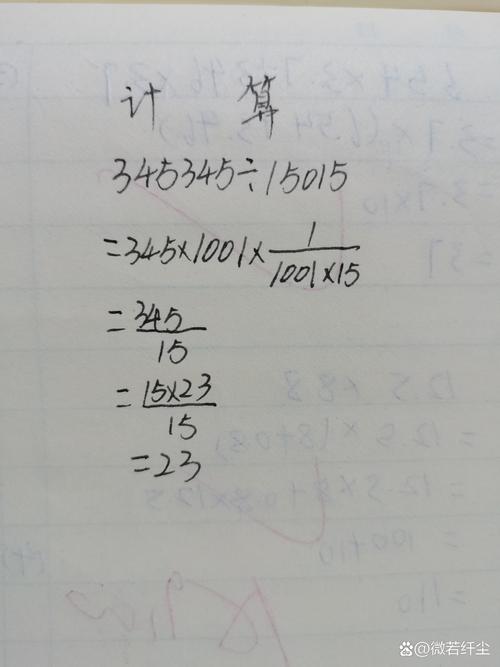 计 算
345345÷15015
=345×1001×1/(1001×15)
=345/15
=(15×23)/15
=23
@微若纤尘